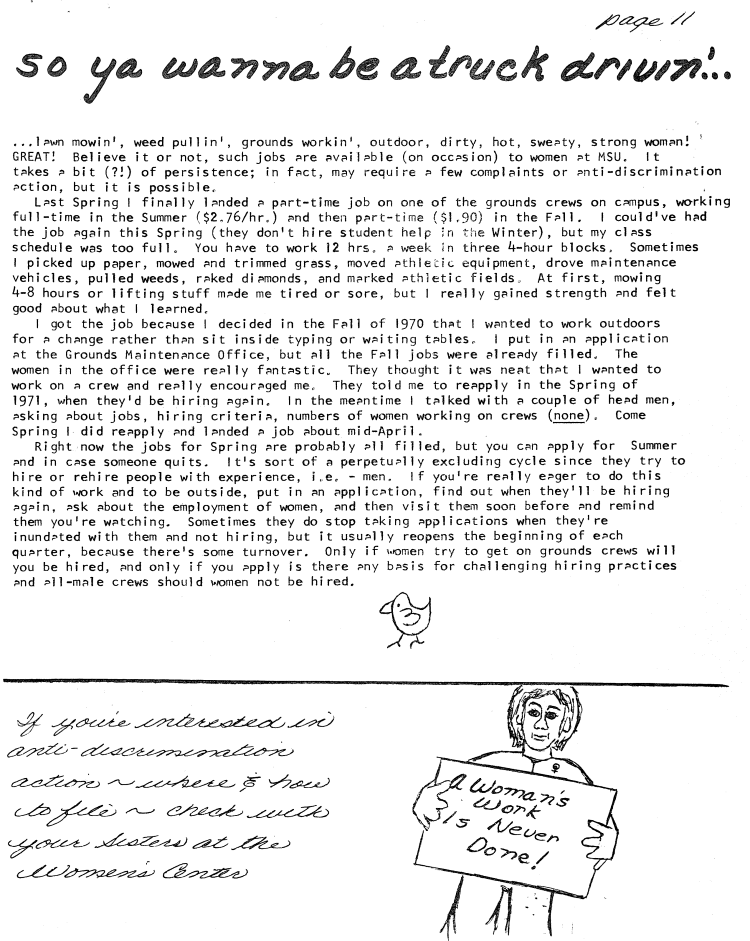 page 11
so ya wanna be a truck drivin'...
...lawn mowin', weed pullin', grounds workin', outdoor, dirty, hot, sweaty, strong woman!
GREAT! Believe it or not, such jobs are available (on occasion) to women at MSU. It
takes a bit (?!) of persistence; in fact, may require a few complaints or anti-discrimination
action, but it is possible.
Last Spring I finally landed a part-time job on one of the grounds crews on campus, working
full-time in the Summer ($2.76/hr.) and then part-time ($1.90) in the Fall. I could've had
the job again this Spring (they don't hire student help in the Winter), but my class
schedule was too full. You have to work 12 hrs. a week in three 4-hour blocks. Sometimes
I picked up paper, mowed and trimmed grass, moved athletic equipment, drove maintenance
vehicles, pulled weeds, raked diamonds, and marked athletic fields. At first, mowing
4-8 hours or lifting stuff made me tired or sore, but I really gained strength and felt
good about what I learned.
I got the job because I decided in the Fall of 1970 that I wanted to work outdoors
for a change rather than sit inside typing or waiting tables. I put in an application
at the Grounds Maintenance Office, but all the Fall jobs were already filled. The
women in the office were really fantastic. They thought it was neat that I wanted to
work on a crew and really encouraged me. They told me to reapply in the Spring of
1971, when they'd be hiring again. In the meantime I talked with a couple of head men,
asking about jobs, hiring criteria, numbers of women working on crews (none). Come
Spring I did reapply and landed a job about mid-April.
Right now the jobs for Spring are probably all filled, but you can apply for Summer
and in case someone quits. It's sort of a perpetually excluding cycle since they try to
hire or rehire people with experience, i.e. - men. If you're really eager to do this
kind of work and to be outside, put in an application, find out when they'll be hiring
again, ask about the employment of women, and then visit them soon before and remind
them you're watching. Sometimes they do stop taking applications when they're
inundated with them and not hiring, but it usually reopens the beginning of each
quarter, because there's some turnover. Only if women try to get on grounds crews will
you be hired, and only if you apply is there any basis for challenging hiring practices
and all-male crews should women not be hired.
If you're interested in
anti-discrimination
action ~ where & how
to file ~ check with
your Sisters at the
Women's Center
A Woman's
Work
Is Never
Done!